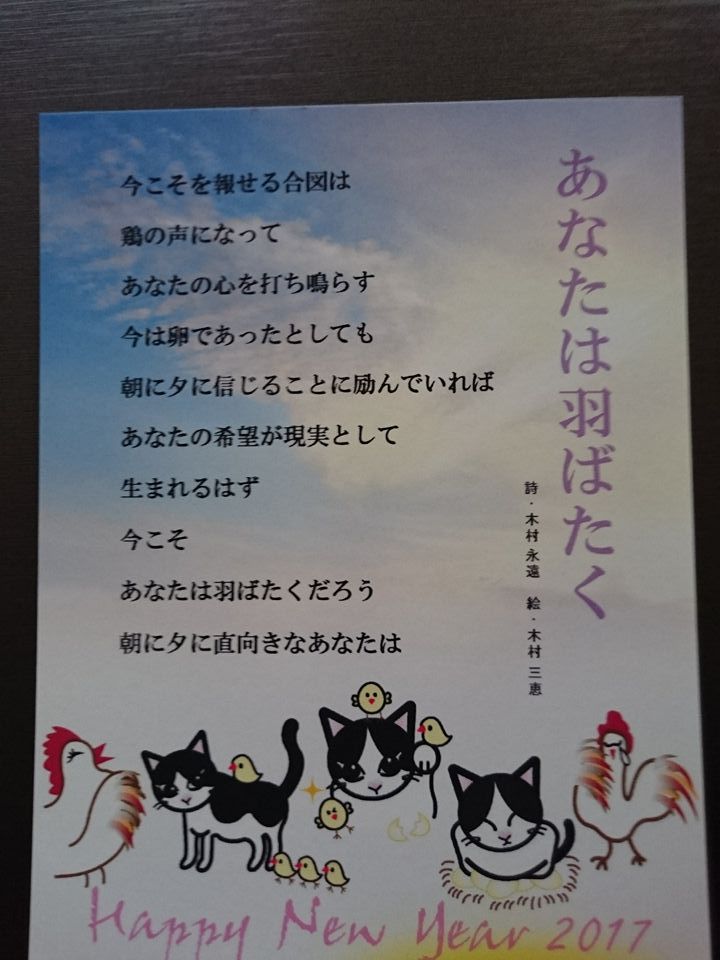 あなたは羽ばたく
詩・木村 永遠　絵・木村 三恵
今こそを報せる合図は
鶏の声になって
あなたの心を打ち鳴らす
今は卵であったとしても
朝に夕に信じることに励んでいれば
あなたの希望が現実として
生まれるはず
今こそ
あなたは羽ばたくだろう
朝に夕に直向きなあなたは
Happy New Year 2017